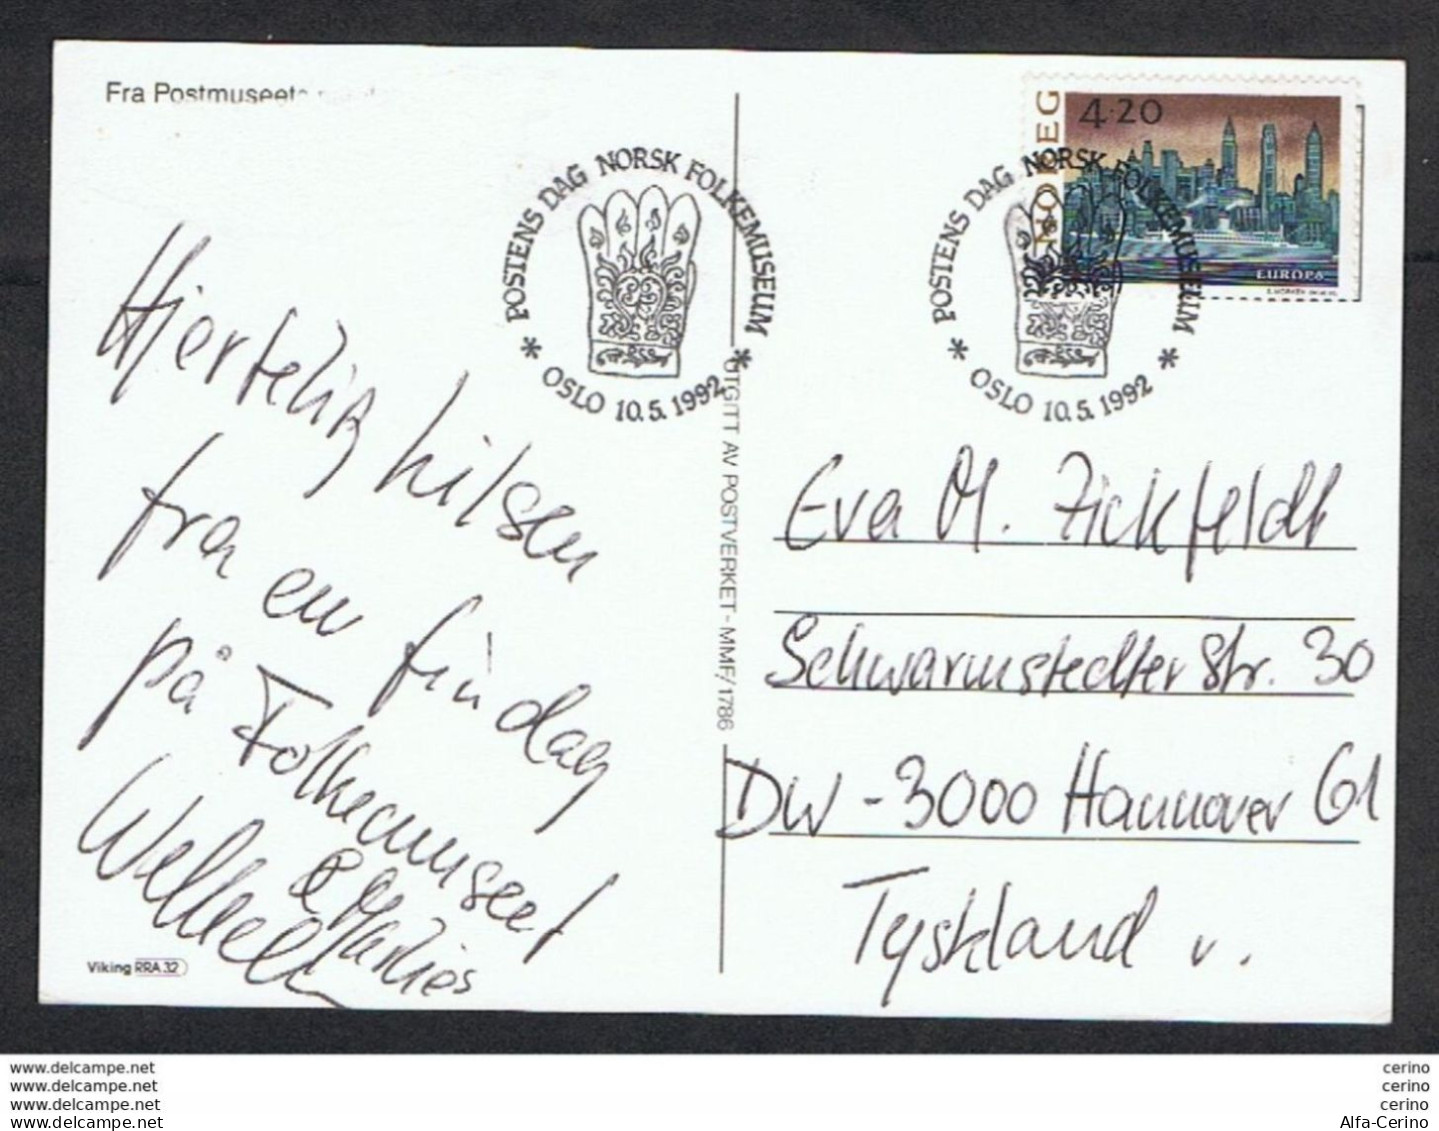 Fra Postmuseets
POSTENS DAG NORSK FOLKEMUSEUM
* OSLO 10.5.1992 *
POSTENS DAG NORSK FOLKEMUSEUM
* OSLO 10.5.1992 *
NOREG
4.20
EUROPA
Hjertelig hilsen
fra en fin dag
på Folkemuseet
& Marlies
Viking RRA 32
UTGITT AV POSTVERKET - MMF/1786
Eva M. Zickfeldt
Schwarmstedter Str. 30
DW-3000 Hannover 61
Tyskland v.
www.delcampe.net
www.delcampe.net
www.delcampe.net
www.delcampe.net
cerino
cerino
cerino
Alfa-Cerino